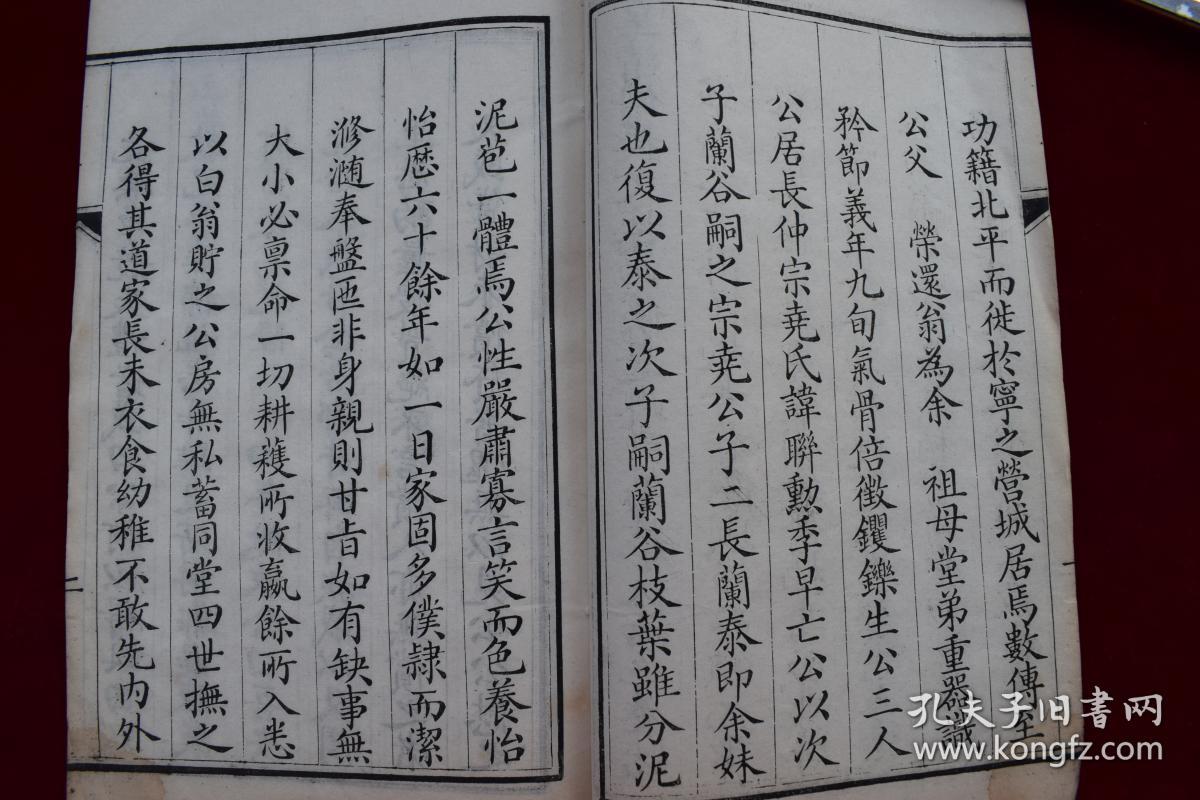 功籍北平而徙於寧之營城居焉數傳至
公父　榮還翁為余　祖母堂弟重器識
矜節義年九旬氣骨倍徵钁鑠生公三人
公居長仲宗堯氏諱聯勳季早亡公以次
子蘭谷嗣之宗堯公子二長蘭泰即余妹
夫也復以泰之次子嗣蘭谷枝葉雖分泥
泥苞一體焉公性嚴肅寡言笑而色養怡
怡歷六十餘年如一日家固多僕隸而潔
滫瀡奉盤匜非身親則甘旨如有缺事無
大小必禀命一切耕穫所收贏餘所入悉
以白翁貯之公房無私蓄同堂四世撫之
各得其道家長未衣食幼稚不敢先內外
二
孔夫子旧书网
www.kongfz.com